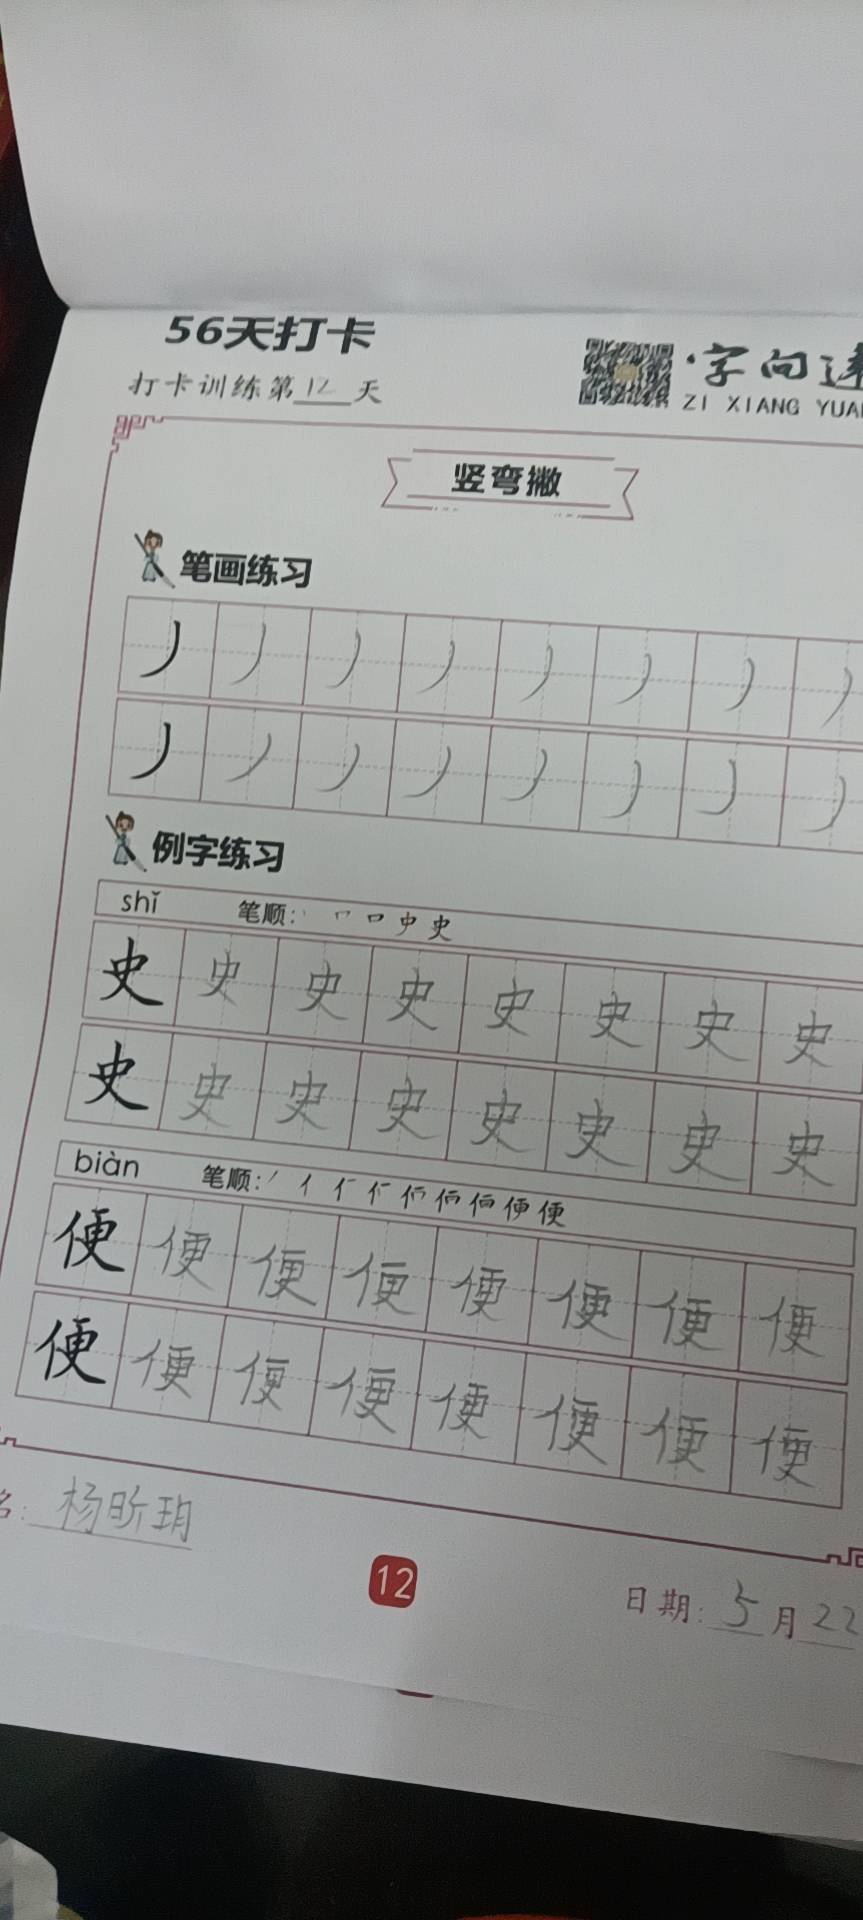 56天打卡
字向
打卡训练第12天
ZI XIANG YUA
竖弯撇
笔画练习
丿 丿 丿 丿 丿 丿 丿 丿
丿 丿 丿 丿 丿 丿 丿 丿
例字练习
shǐ 笔顺: 丨 𠃍 口 史 史
史 史 史 史 史 史 史 史
史 史 史 史 史 史 史 史
biàn 笔顺: 便
便 便 便 便 便 便 便 便
便 便 便 便 便 便 便 便
名: 杨昕玥
12
日期: 5月22